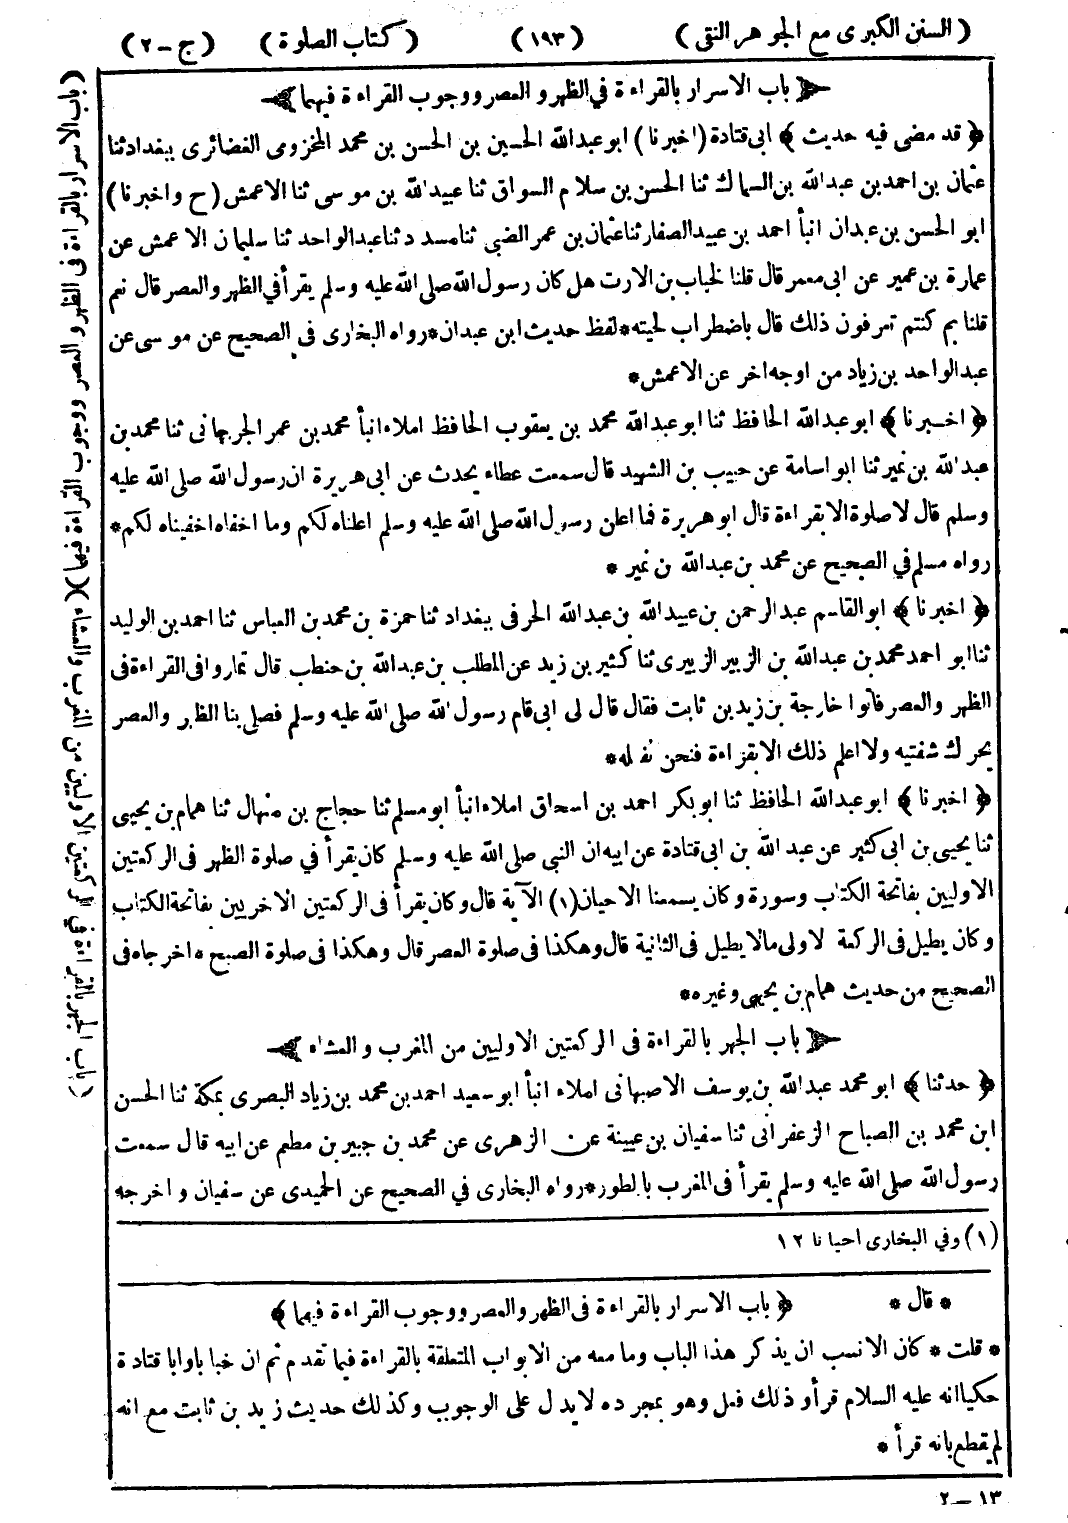 (السنن الكبرى مع الجوهر النقى) (١٩٣) (كتاب الصلوة) (ج-٢)
﴿باب الاسرار بالقراءة في الظهر والعصر ووجوب القراءة فيهما﴾
﴿قد مضى فيه حديث﴾ ابى قتادة (اخبرنا) ابو عبدالله الحسين بن الحسن بن محمد المخزومى الغضائرى ببغداد ثنا
عثمان بن احمد بن عبدالله بن السماك ثنا الحسن بن سلام السواق ثنا عبيدالله بن موسى ثنا الاعمش (ح واخبرنا)
ابو الحسن بن عبدان انبأ احمد بن عبيد الصفار ثنا عثمان بن عمر الضبي ثنا مسدد ثنا عبدالواحد ثنا سليمان الاعمش عن
عمارة بن عمير عن ابى معمر قال قلنا لخباب بن الارت هل كان رسول الله صلى الله عليه وسلم يقرأ في الظهر والعصر قال نعم
قلنا بم كنتم تعرفون ذلك قال باضطراب لحيته*لفظ حديث ابن عبدان*رواه البخارى فى الصحيح عن موسى عن
عبدالواحد بن زياد من اوجه اخر عن الاعمش*
﴿اخبرنا﴾ ابو عبدالله الحافظ ثنا ابو عبدالله محمد بن يعقوب الحافظ املاء انبأ محمد بن عمر الجرجانى ثنا محمد بن
عبدالله بن نمير ثنا ابو اسامة عن حبيب بن الشهيد قال سمعت عطاء يحدث عن ابى هريرة ان رسول الله صلى الله عليه
وسلم قال لا صلوة الا بقراءة قال ابو هريرة فما اعلن رسول الله صلى الله عليه وسلم اعلناه لكم وما اخفاه اخفيناه لكم*
رواه مسلم في الصحيح عن محمد بن عبدالله بن نمير *
﴿اخبرنا﴾ ابو القاسم عبدالرحمن بن عبيدالله بن عبدالله الحرفى ببغداد ثنا حمزة بن محمد بن العباس ثنا احمد بن الوليد
ثنا ابو احمد محمد بن عبدالله بن الزبير الزبيرى ثنا كثير بن زيد عن المطلب بن عبدالله بن حنطب قال تماروا فى القراءة فى
الظهر والعصر فاتوا خارجة بن زيد بن ثابت فقال قال لى ابى قام رسول الله صلى الله عليه وسلم فصلى بنا الظهر والعصر
يحرك شفتيه ولا اعلم ذلك الا بقراءة فنحن نفعله*
﴿اخبرنا﴾ ابو عبدالله الحافظ ثنا ابو بكر احمد بن اسحاق املاء انبأ ابو مسلم ثنا حجاج بن منهال ثنا همام بن يحيى
ثنا يحيى بن ابى كثير عن عبدالله بن ابى قتادة عن ابيه ان النبى صلى الله عليه وسلم كان يقرأ في صلوة الظهر فى الركعتين
الاوليين بفاتحة الكتاب وسورة وكان يسمعنا الاحيان(١) الآية قال وكان يقرأ فى الركعتين الاخريين بفاتحة الكتاب
وكان يطيل فى الركعة لاولى مالا يطيل فى الثانية قال وهكذا فى صلوة العصر قال وهكذا فى صلوة الصبح * اخرجاه فى
الصحيح من حديث همام بن يحيى وغيره*
﴿باب الجهر بالقراءة فى الركعتين الاوليين من المغرب والعشاء﴾
﴿حدثنا﴾ ابو محمد عبدالله بن يوسف الاصبهانى املاء انبأ ابو سعيد احمد بن محمد بن زياد البصرى بمكة ثنا الحسن
ابن محمد بن الصباح الزعفرانى ثنا سفيان بن عيينة عن الزهرى عن محمد بن جبير بن مطعم عن ابيه قال سمعت
رسول الله صلى الله عليه وسلم يقرأ فى المغرب بالطور*رواه البخارى في الصحيح عن الحميدى عن سفيان واخرجه
(١) وفي البخارى احيانا ١٢
* قال * ﴿باب الاسرار بالقراءة فى الظهر والعصر ووجوب القراءة فيهما﴾
* قلت * كان الانسب ان يذكر هذا الباب وما معه من الابواب المتعلقة بالقراءة فيما تقدم ثم ان خبابا وابا قتادة
حكيا انه عليه السلام قرأ وذلك فعل وهو بمجرده لا يدل على الوجوب وكذلك حديث زيد بن ثابت مع انه
لم يقطع بانه قرأ *
١٣-٢
(باب الاسرار بالقراءة فى الظهر والعصر ووجوب القراءة فيهما)
(باب الجهر بالقراءة في الركعتين الاوليين من المغرب والعشاء)